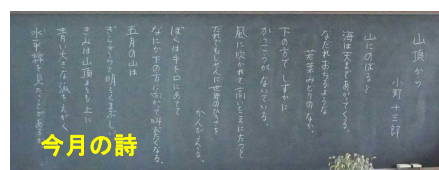 山頂から
小野十三郎
山にのぼると
海は天まであがってくる。
なだれおちるような
若葉みどりのなか。
下の方で しずかに
かっこうがないている。
風に吹かれて高いところにたつと
だれでもしぜんに世界のひろさを
かんがえる。
ぼくは手を口にあてて
なにか下の方に向かって叫びたくなる。
五月の山は
ぎらぎらと明るくまぶしい。
きみは山頂よりも上に
青い大きな弧をえがく
水平線を見たことがあるか。
今月の詩